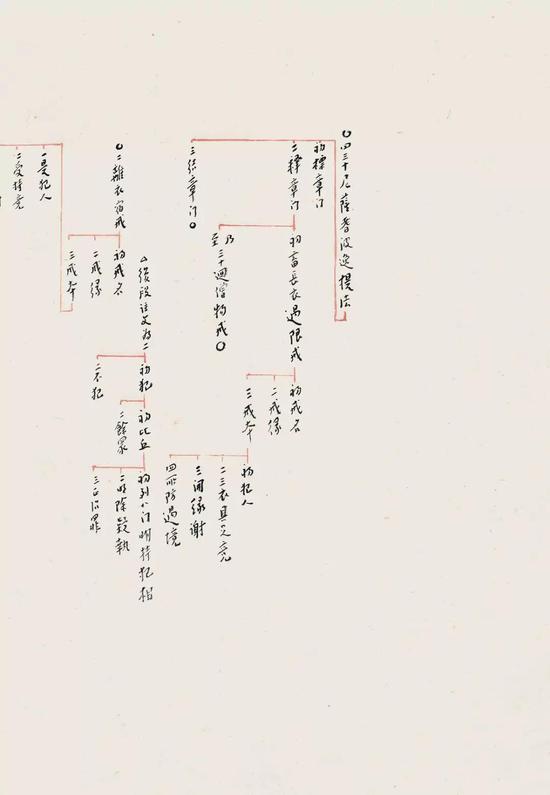 〇四三十尼薩耆波逸提法
初標章门
二釋章门
三结章门〇
初畜長衣過限戒
乃至三十迴僧物戒〇
初戒名
二戒缘
三戒本
初犯人
二三衣具足竟
三開缘謝
四所防過境
〇二離衣宿戒
初戒名
二戒缘
三戒本
△後段註文为二
初犯
二不犯
初比丘
二餘眾
初列八门明持犯相
二明除疑執
三正治罪
一是犯人
二受持竟